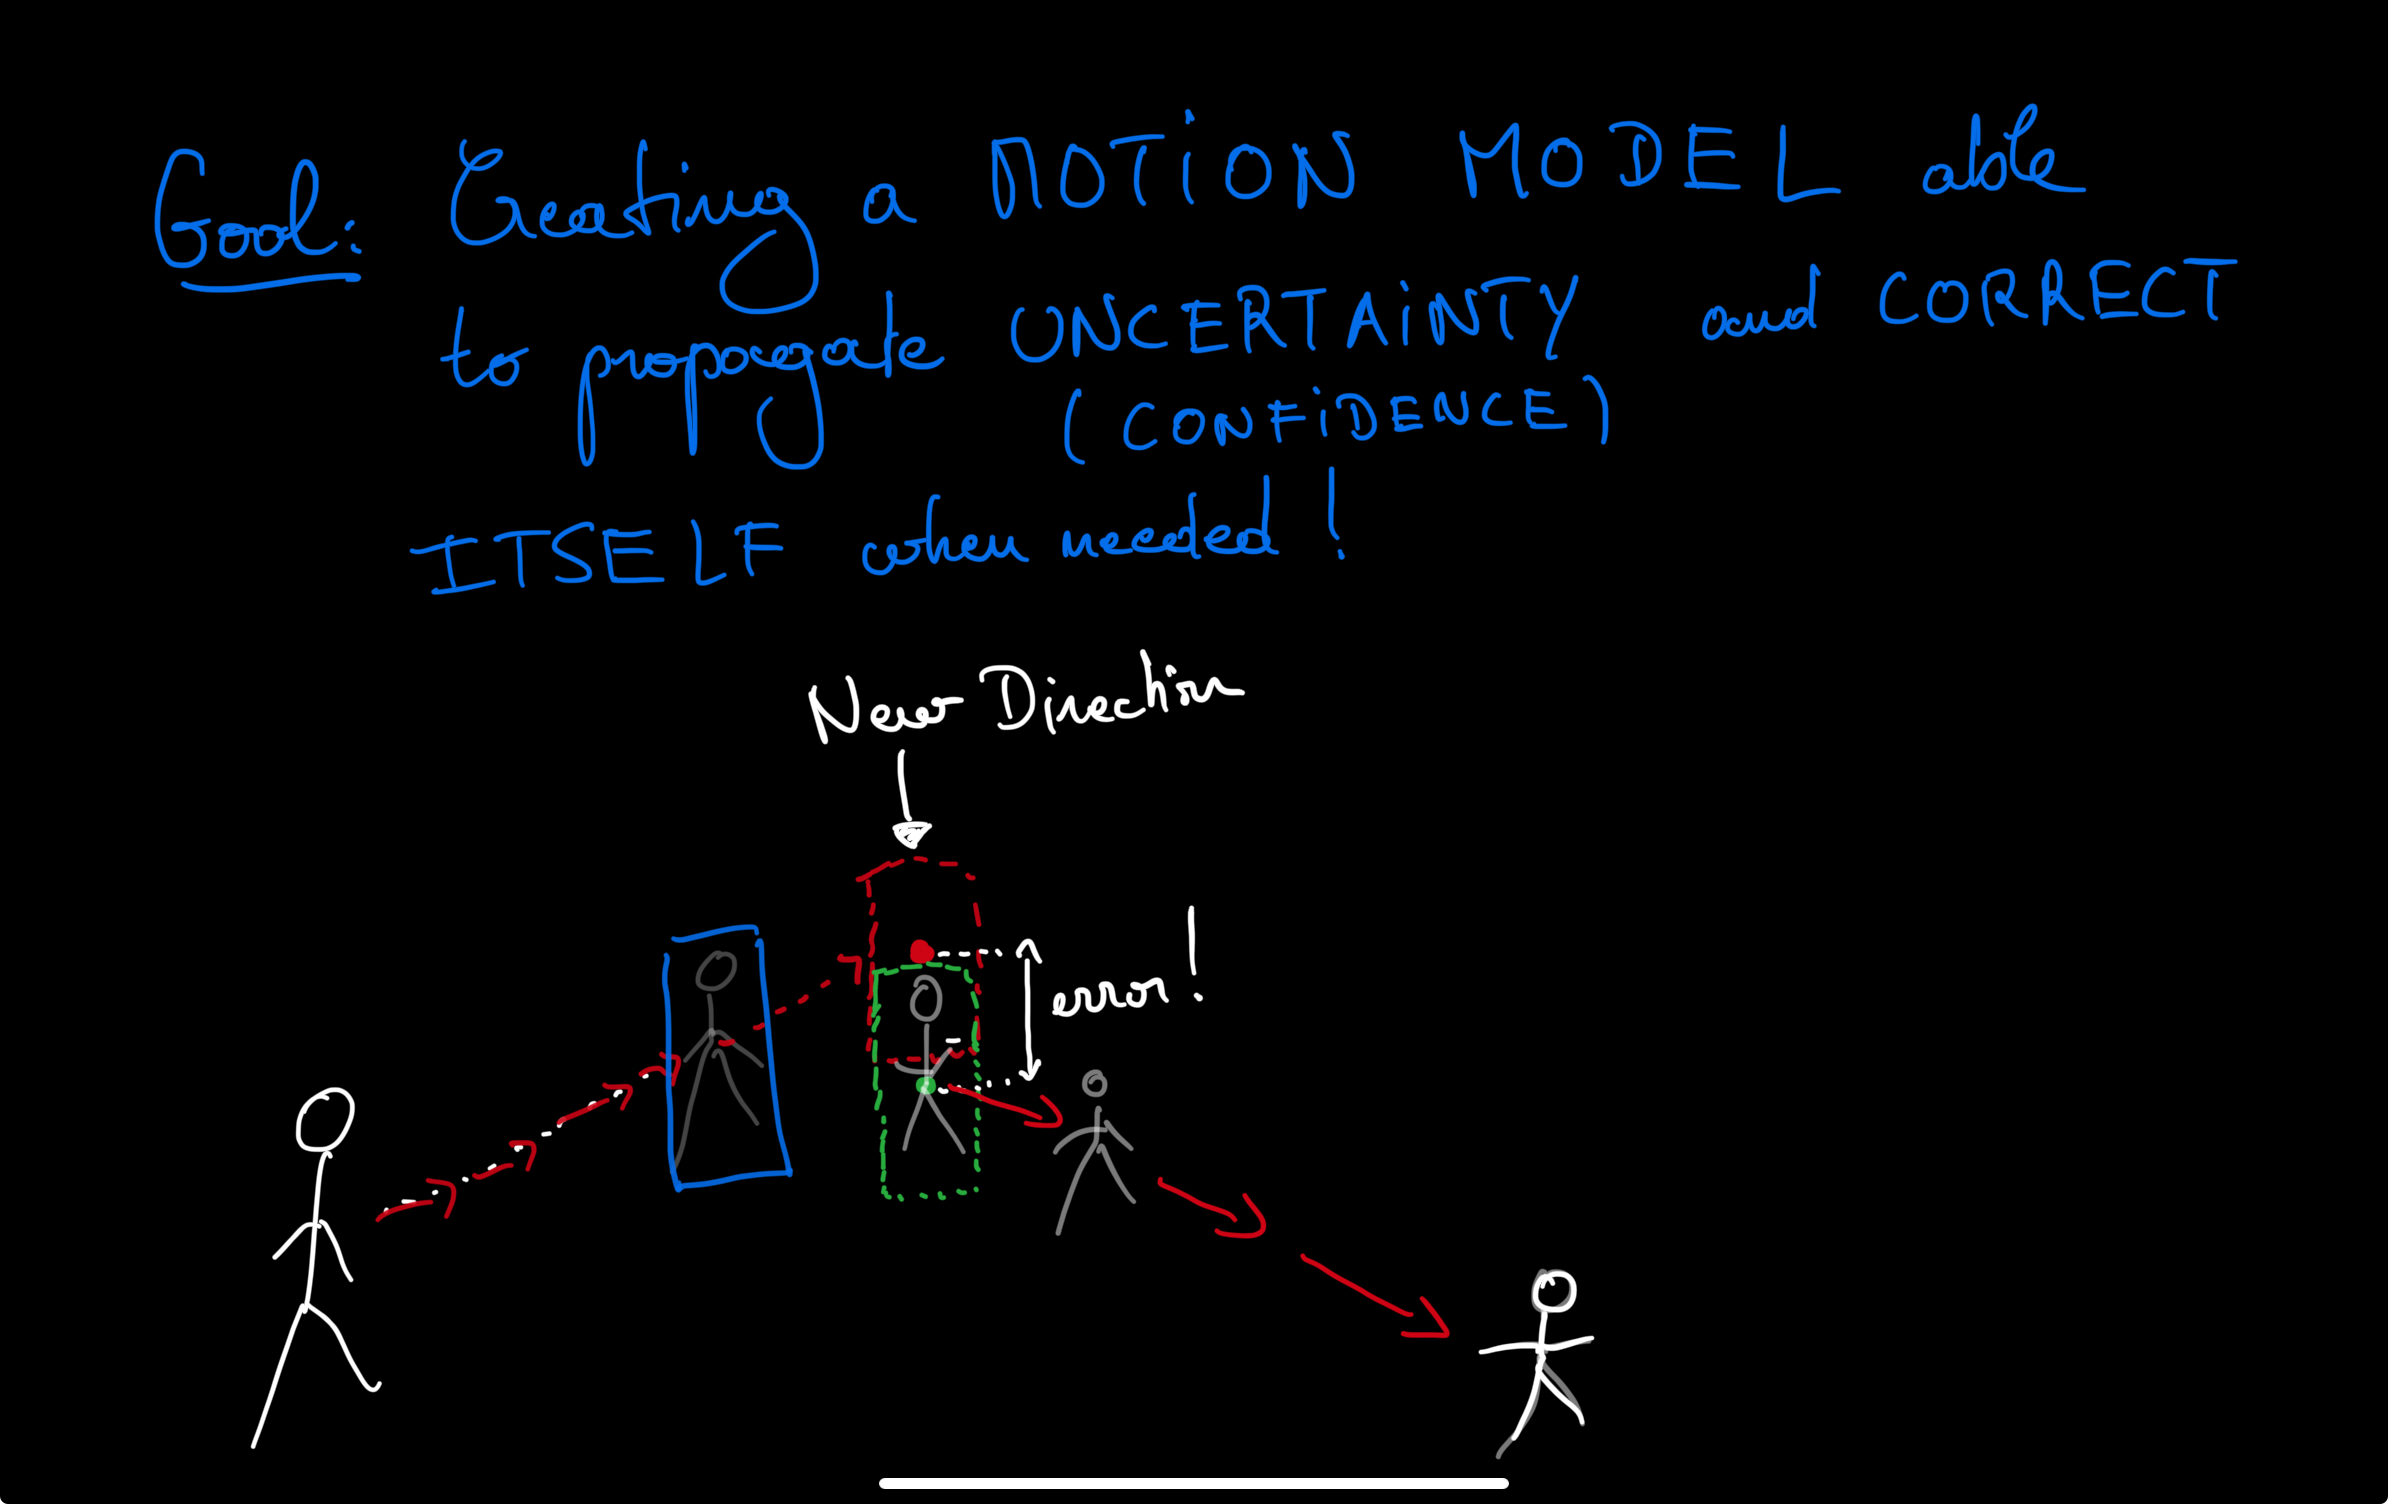 Goal: Creating a MOTION MODEL able
to propagate UNCERTAINTY and CORRECT
(CONFIDENCE)
ITSELF when needed!
New Direction
error!